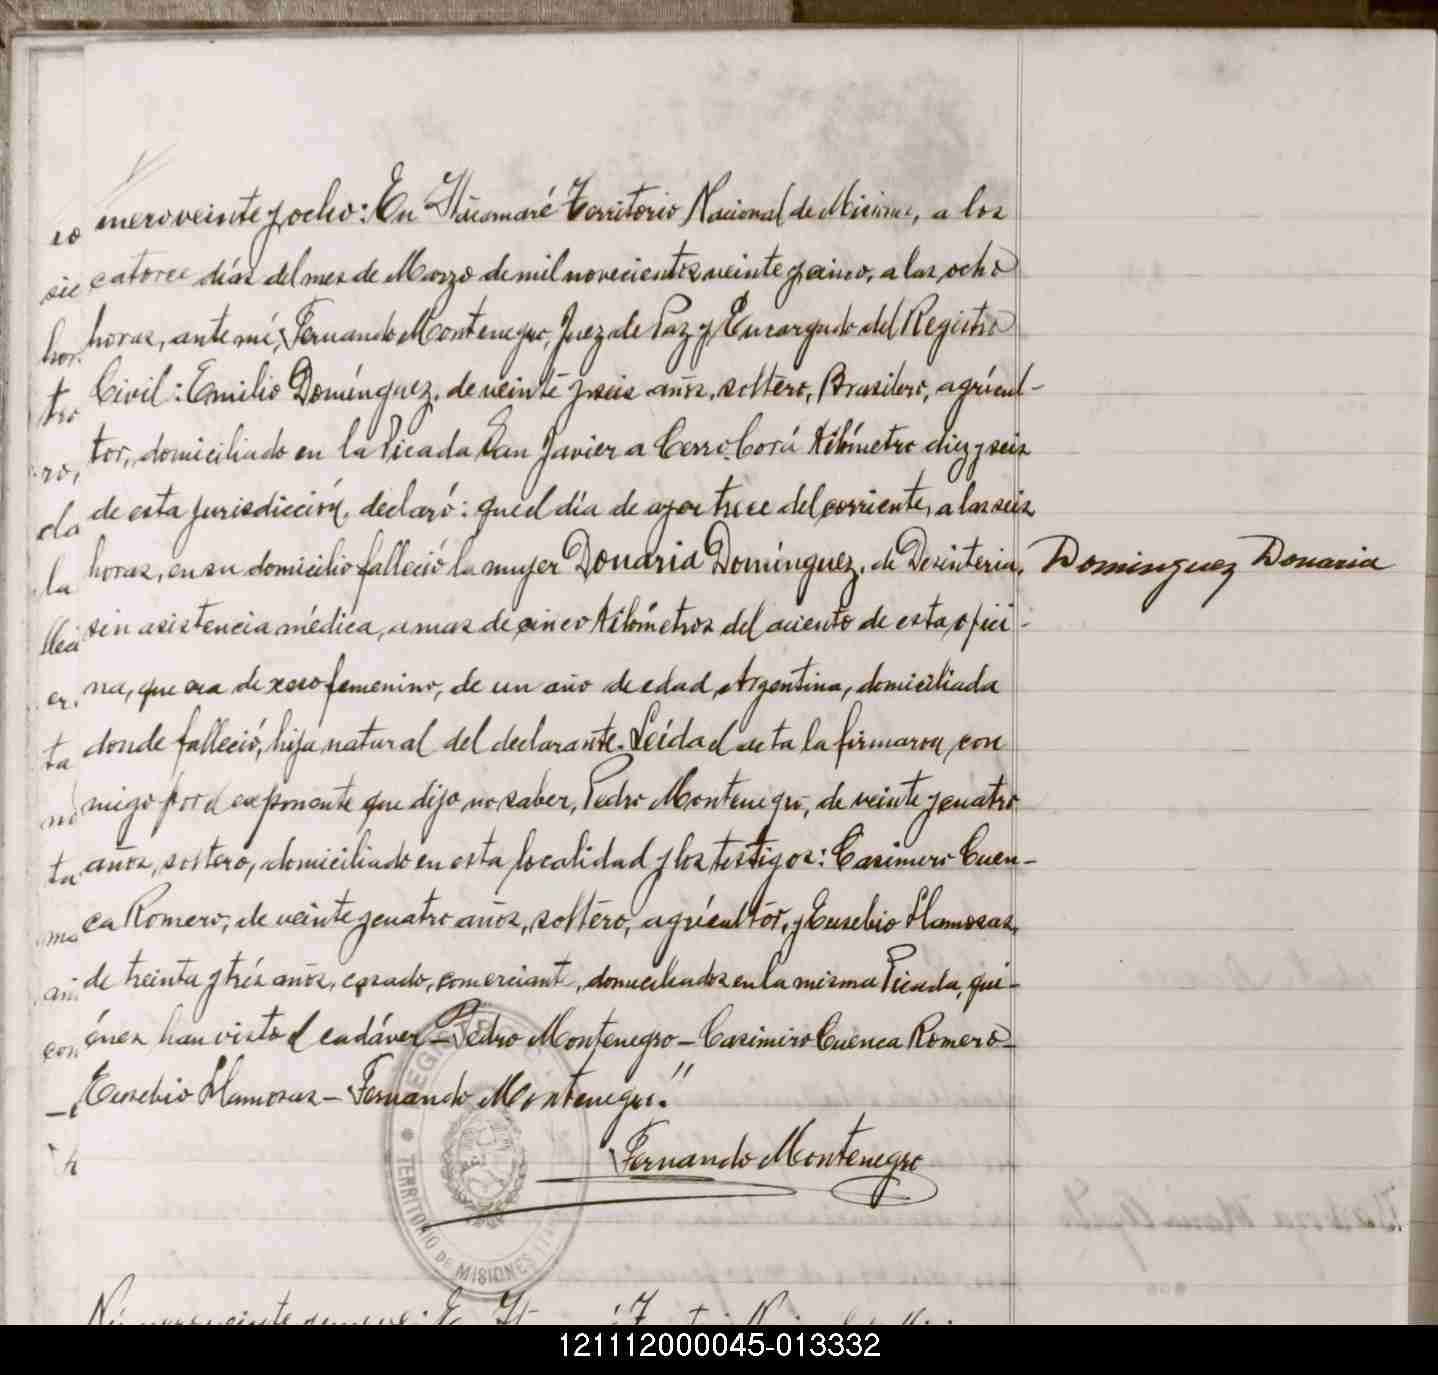 mero veinte y ocho: En Itacaruaré Territorio Nacional de Misiones, a los
catorce días del mes de Marzo de mil novecientos veinte y cinco, a las ocho
horas, ante mí, Fernando Montenegro, Juez de Paz y Encargado del Registro
Civil: Emilio Domínguez, de veinte y seis años, soltero, Brasilero, agricul-
tor, domiciliado en la Picada San Javier a Cerro Corá Kilómetro diez y seis
de esta jurisdicción, declaró: que el día de ayer trece del corriente, a las seis
horas, en su domicilio falleció la mujer Donaria Domínguez, de Desinteria,
Dominguez Donaria
sin asistencia médica, a mas de cinco Kilómetros del aciento de esta ofici-
na, que era de xeso femenino, de un año de edad, Argentina, domiciliada
donde falleció, hija natural del declarante. Leída el acta la firmaron con
migo por el exponente que dijo no saber, Pedro Montenegro, de veinte y cuatro
años, soltero, domiciliado en esta localidad y los testigos: Casimiro Cuen-
ca Romero, de veinte y cuatro años, soltero, agricultor, y Eusebio Llamosas,
de treinta y trés años, casado, comerciante, domiciliados en la misma Picada, qui-
énes han visto el cadáver — Pedro Montenegro — Casimiro Cuenca Romero —
Eusebio Llamosas — Fernando Montenegro."
Fernando Montenegro
REGISTRO
TERRITORIO DE MISIONES
121112000045-013332